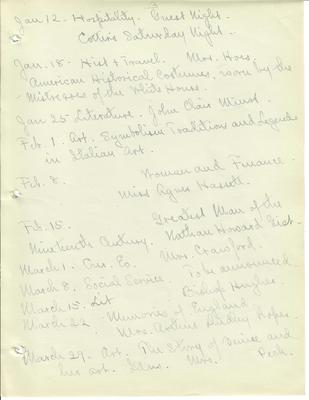 Jan 12. Hospitality. Guest Night.
Cotters Saturday Night.
Jan. 18. Hist & Travel. Mrs. Hoes.
American Historical Costumes, worn by the
Mistresses of the White House.
Jan 25 Literature. John Clair Minot.
Feb. 1. Art. Symbolism Tradition and Legends
in Italian Art.
Feb. 8. Woman and Finance.
Miss Agnes Hassett.
Feb. 15. Greatest Man of the
Nineteenth Century. Nathan Howard Gist.
March 1. Cur. Ev. Mrs. Crawford.
March 8. Social Service. To be announced.
March 15. Lit Bishop Hughes.
March 22 Memories of England.
Mrs. Arthur Dudley Ropes.
March 29. Art. The Story of Venice and
her art. Mrs. Peck.